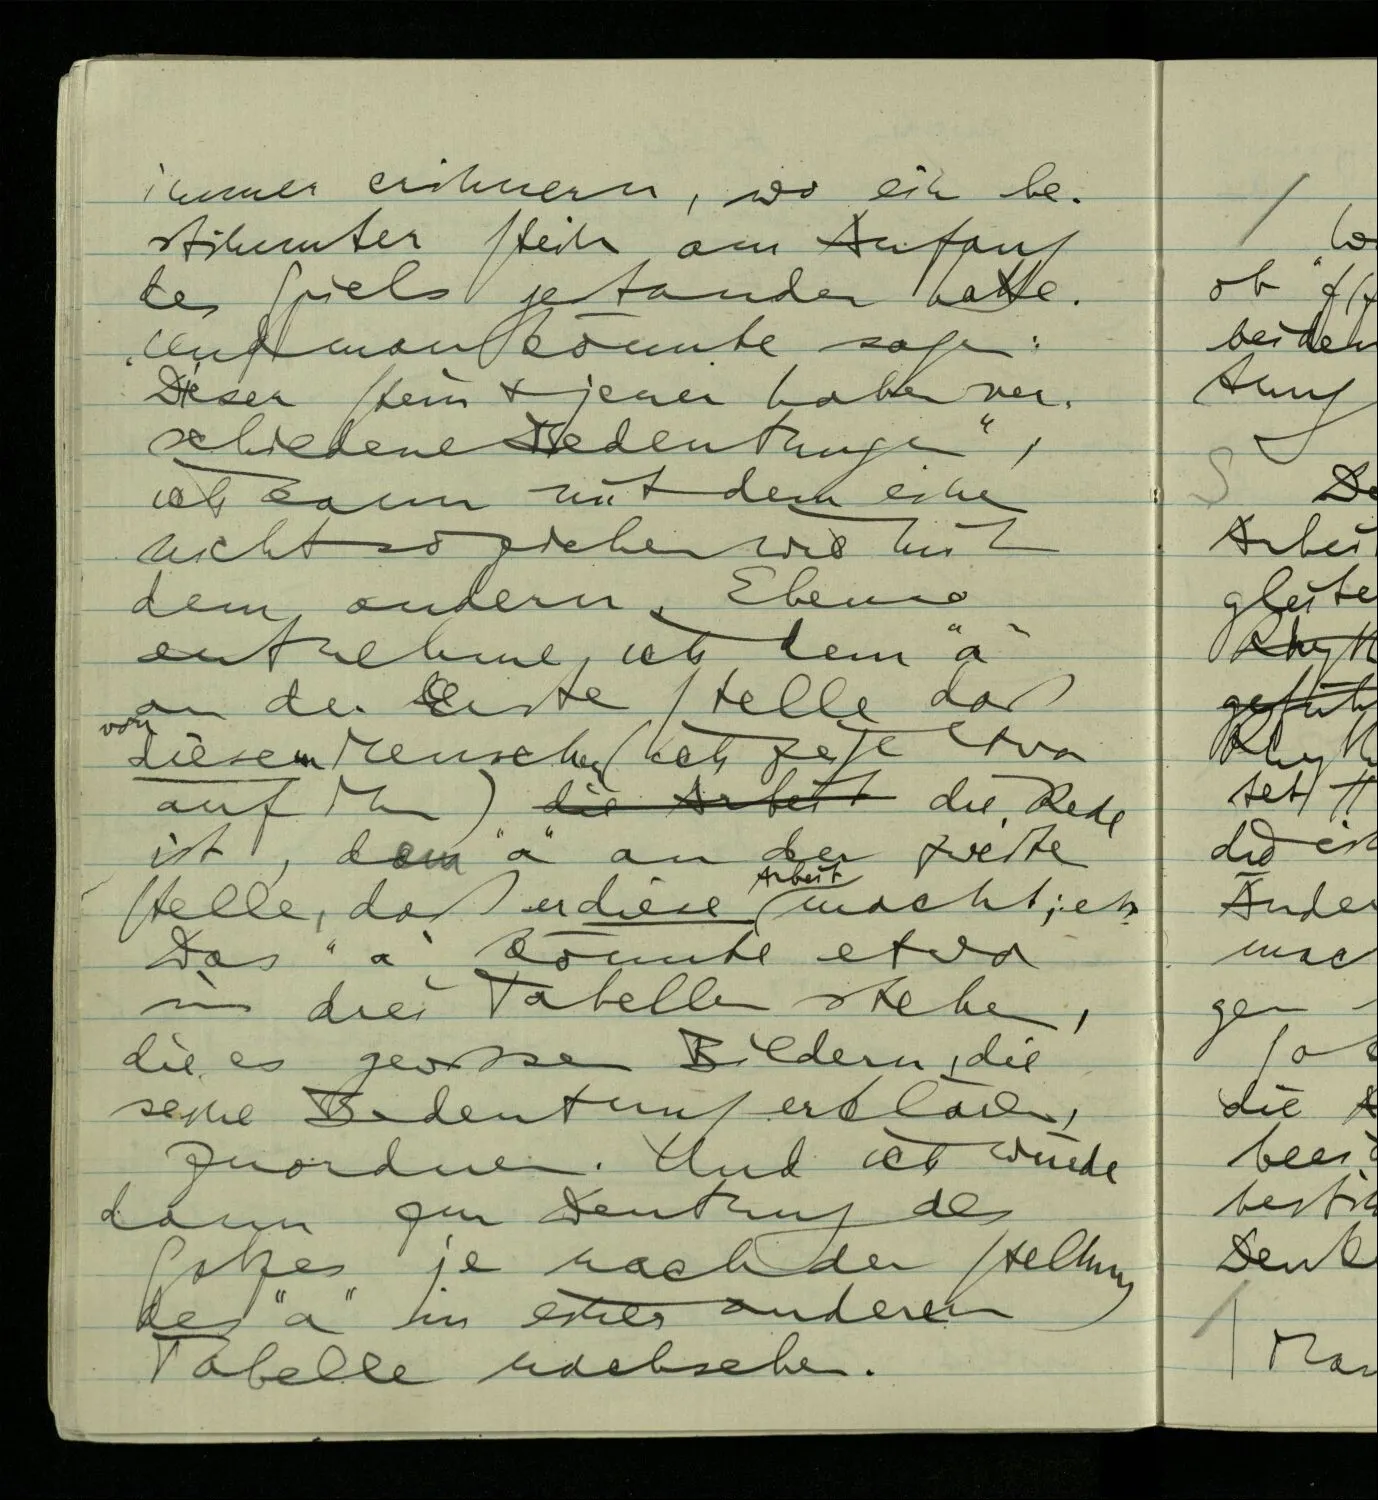 immer erinnern, wo ein be-
stimmter Stein am Anfang
des Spiels gestanden hatte.
Und man könnte sagen:
„Dieser Stein & jener haben ver-
schiedene Bedeutungen”,
ich kann mit dem einen
nicht so ziehen wie mit
dem andern. Ebenso
entnehme ich dem “a”
an der Erste Stelle daß
von
diesem Menschen (ich zeige etwa
auf ihn) die Arbeit die Rede
ist, dem “a” an der zweite
Arbeit
Stelle, daß er diese macht; etc
Das “a” könnte etwa
in drei Tabellen stehen,
die es gewissen Bildern, die
seine Bedeutung erklären,
zuordnen. Und ich würde
dann zur Deutung des
Satzes je nach der Stellung
des “a” in einer anderen
Tabelle nachsehen.
/
ob
beiden
tung
S
Arbeit
gleite
die
Ander
mac
gen
die
Denk
/